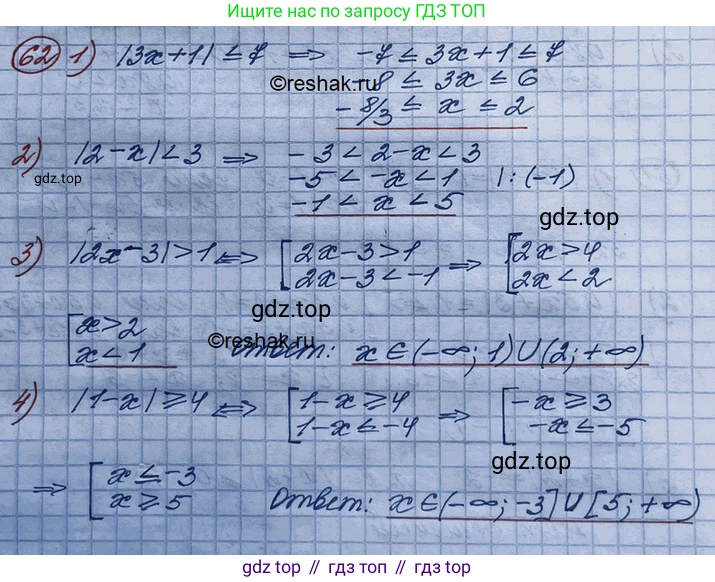 Ищите нас по запросу ГДЗ ТОП
62 1) |3x+1| ≤ 7 ⇒ -7 ≤ 3x+1 ≤ 7
©reshak.ru -8 ≤ 3x ≤ 6
-8/3 ≤ x ≤ 2
2) |2-x| < 3 ⇒ -3 < 2-x < 3
gdz.top -5 < -x < 1 |:(-1)
-1 < x < 5
gdz.top
3) |2x-3| > 1 ⇔ [2x-3 > 1 ⇒ [2x > 4
2x-3 < -1 2x < 2
gdz.top
[x > 2
x < 1 ©reshak.ru Ответ: x ∈ (-∞; 1) ∪ (2; +∞)
4) |1-x| ≥ 4 ⇔ [1-x ≥ 4 ⇒ [-x ≥ 3
1-x ≤ -4 -x ≤ -5
gdz.top
⇒ [x ≤ -3
x ≥ 5 Ответ: x ∈ (-∞; -3] ∪ [5; +∞)
gdz top // гдз топ // gdz.top // гдз.топ